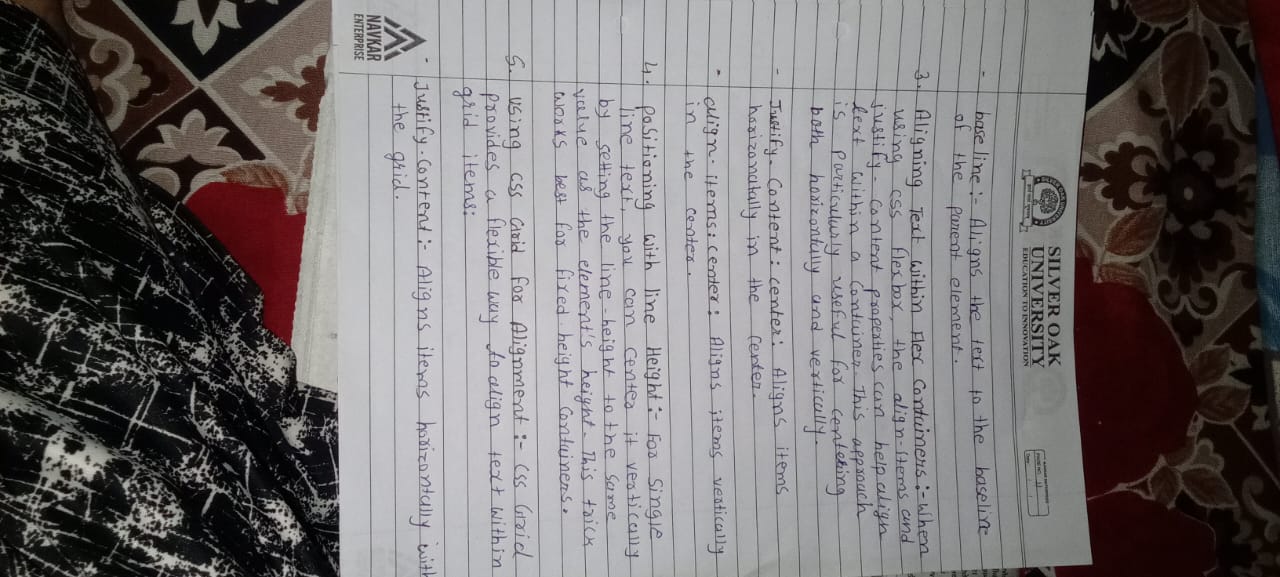 SILVER OAK
UNIVERSITY
EDUCATION TO INNOVATION
- base line :- Aligns the text to the baseline
of the parent element.
3. Aligning Text within Flex Containers :- When
using CSS flexbox, the align-items and
justify-content properties can help align
text within a container. This approach
is particularly useful for centering
both horizontally and vertically
- Justify-content : center : Aligns items
horizontally in the center.
- align-items : center : Aligns items vertically
in the center.
4. Positioning with line Height :- For single
line text, you can center it vertically
by setting the line-height to the same
value as the element's height. This trick
works best for fixed-height containers.
5. Using CSS Grid for Alignment :- CSS Grid
provides a flexible way to align text within
grid items:
- Justify-Content :- Aligns items horizontally with
the grid.
NAVKAR
ENTERPRISE